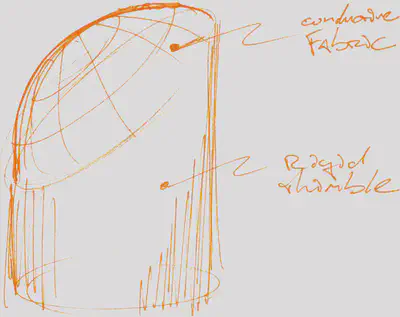 conductive
FABRIC
Rigid
thimble